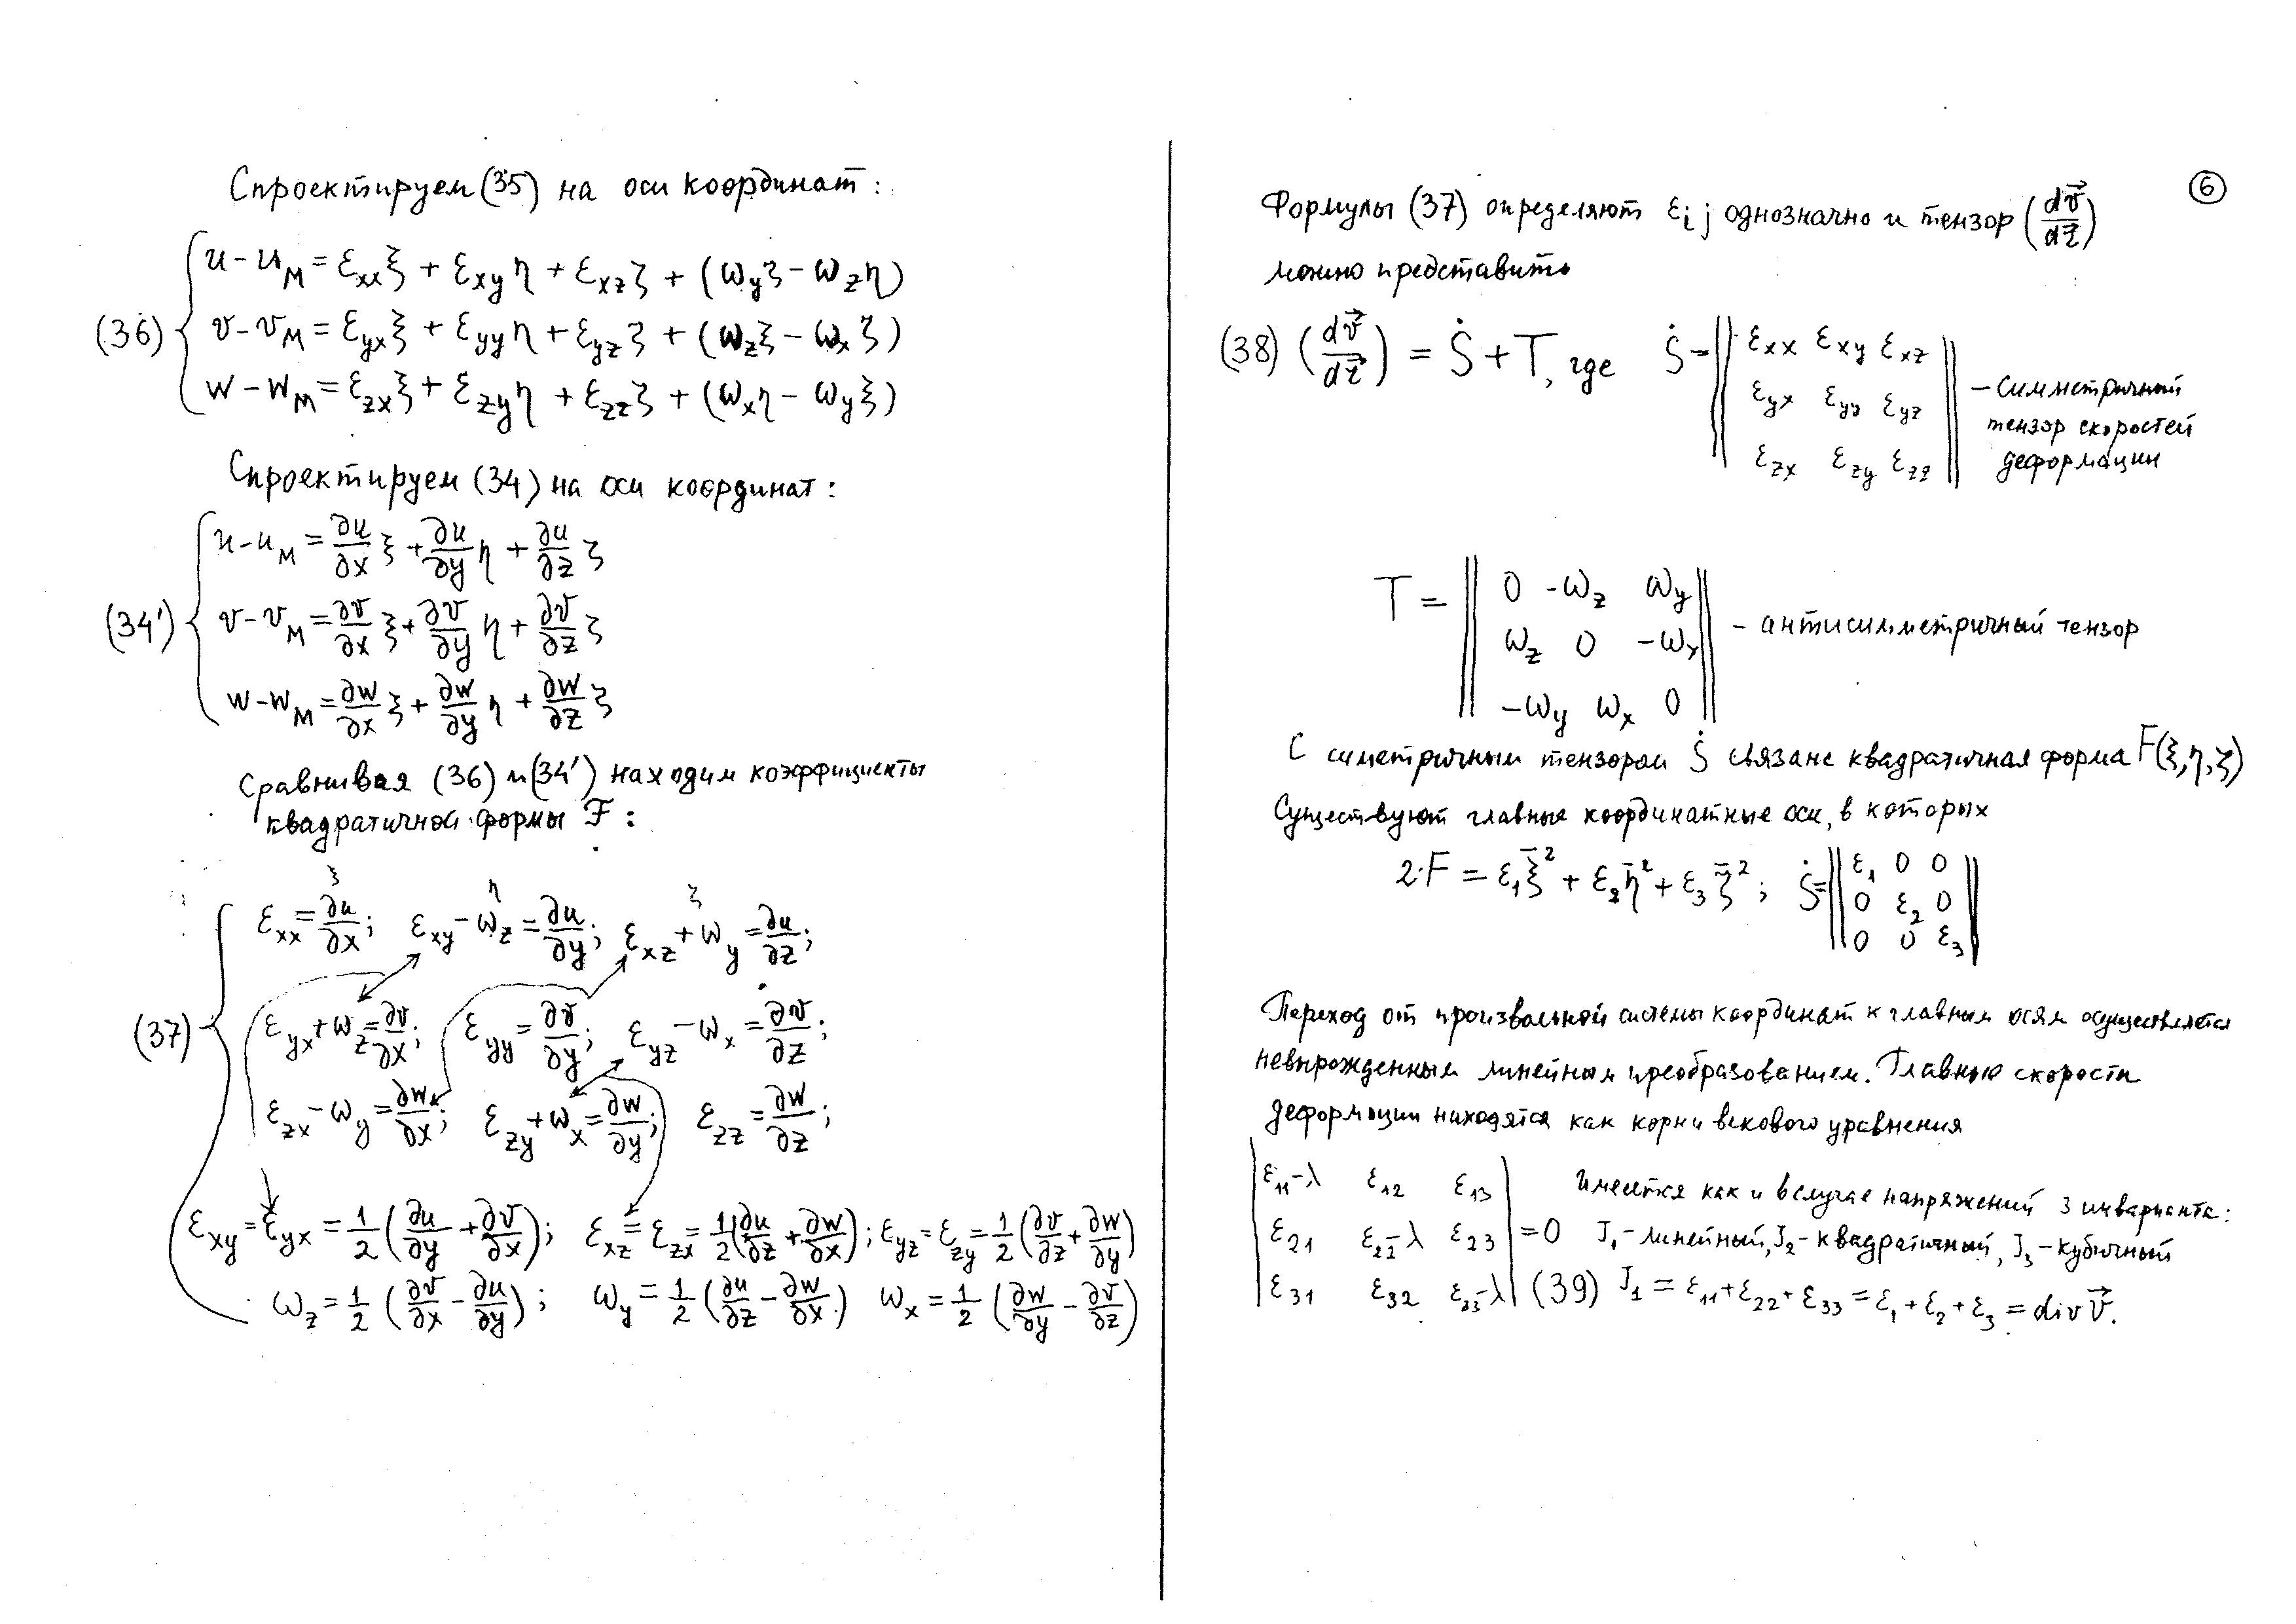 Спроектируем (35) на оси координат:
(36) { u - u_M = ε_xx ξ + ε_xy η + ε_xz ζ + (ω_y ζ - ω_z η)
v - v_M = ε_yx ξ + ε_yy η + ε_yz ζ + (ω_z ξ - ω_x ζ)
w - w_M = ε_zx ξ + ε_zy η + ε_zz ζ + (ω_x η - ω_y ξ)
Спроектируем (34) на оси координат:
(34') { u - u_M = ∂u/∂x ξ + ∂u/∂y η + ∂u/∂z ζ
v - v_M = ∂v/∂x ξ + ∂v/∂y η + ∂v/∂z ζ
w - w_M = ∂w/∂x ξ + ∂w/∂y η + ∂w/∂z ζ
Сравнивая (36) и (34') находим коэффициенты
квадратичной формы F:
ξ η ζ
(37) { ε_xx = ∂u/∂x; ε_xy - ω_z = ∂u/∂y; ε_xz + ω_y = ∂u/∂z;
ε_yx + ω_z = ∂v/∂x; ε_yy = ∂v/∂y; ε_yz - ω_x = ∂v/∂z;
ε_zx - ω_y = ∂w/∂x; ε_zy + ω_x = ∂w/∂y; ε_zz = ∂w/∂z;
ε_xy = ε_yx = 1/2 (∂u/∂y + ∂v/∂x); ε_xz = ε_zx = 1/2 (∂u/∂z + ∂w/∂x); ε_yz = ε_zy = 1/2 (∂v/∂z + ∂w/∂y)
ω_z = 1/2 (∂v/∂x - ∂u/∂y); ω_y = 1/2 (∂u/∂z - ∂w/∂x) ω_x = 1/2 (∂w/∂y - ∂v/∂z)
6
Формулы (37) определяют ε_ij однозначно и тензор (dv⃗/dr⃗)
можно представить
(38) (dv⃗/dr⃗) = Ṡ + T, где Ṡ = || ε_xx ε_xy ε_xz
ε_yx ε_yy ε_yz
ε_zx ε_zy ε_zz || - симметричный
тензор скоростей
деформации
T = || 0 -ω_z ω_y
ω_z 0 -ω_x
-ω_y ω_x 0 || - антисимметричный тензор
С симетричным тензором Ṡ связане квадратичная форма F(ξ,η,ζ)
Существуют главные координатные оси, в которых
2·F = ε₁ξ̄² + ε₂η̄² + ε₃ζ̄²; Ṡ = || ε₁ 0 0
0 ε₂ 0
0 0 ε₃ ||
Переход от произвольной системы координат к главным осям осуществляется
невырожденным линейным преобразованием. Главные скорости
деформации находятся как корни векового уравнения
| ε₁₁-λ ε₁₂ ε₁₃ | Имеется как и в случае напряжений 3 инварианта:
| ε₂₁ ε₂₂-λ ε₂₃ | = 0 J₁-линейный, J₂-квадратичный, J₃-кубичный
| ε₃₁ ε₃₂ ε₃₃-λ | (39) J₁ = ε₁₁ + ε₂₂ + ε₃₃ = ε₁ + ε₂ + ε₃ = div v⃗.